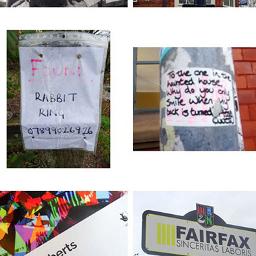 FOUND
RABBIT
RING
07899026926
To the one in the
haunted house,
why do you only
smile when my
back is turned
berts
FAIRFAX
SINCERITAS LABORIS